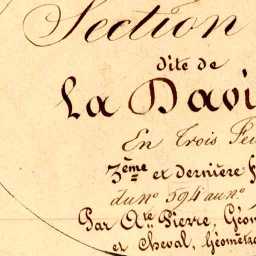 Section
dite de
La Davi
En Trois Feu
3ème et dernière f
du nº 594 au nº
Par Ate Pierre, Géom
et Cheval, Géomètre